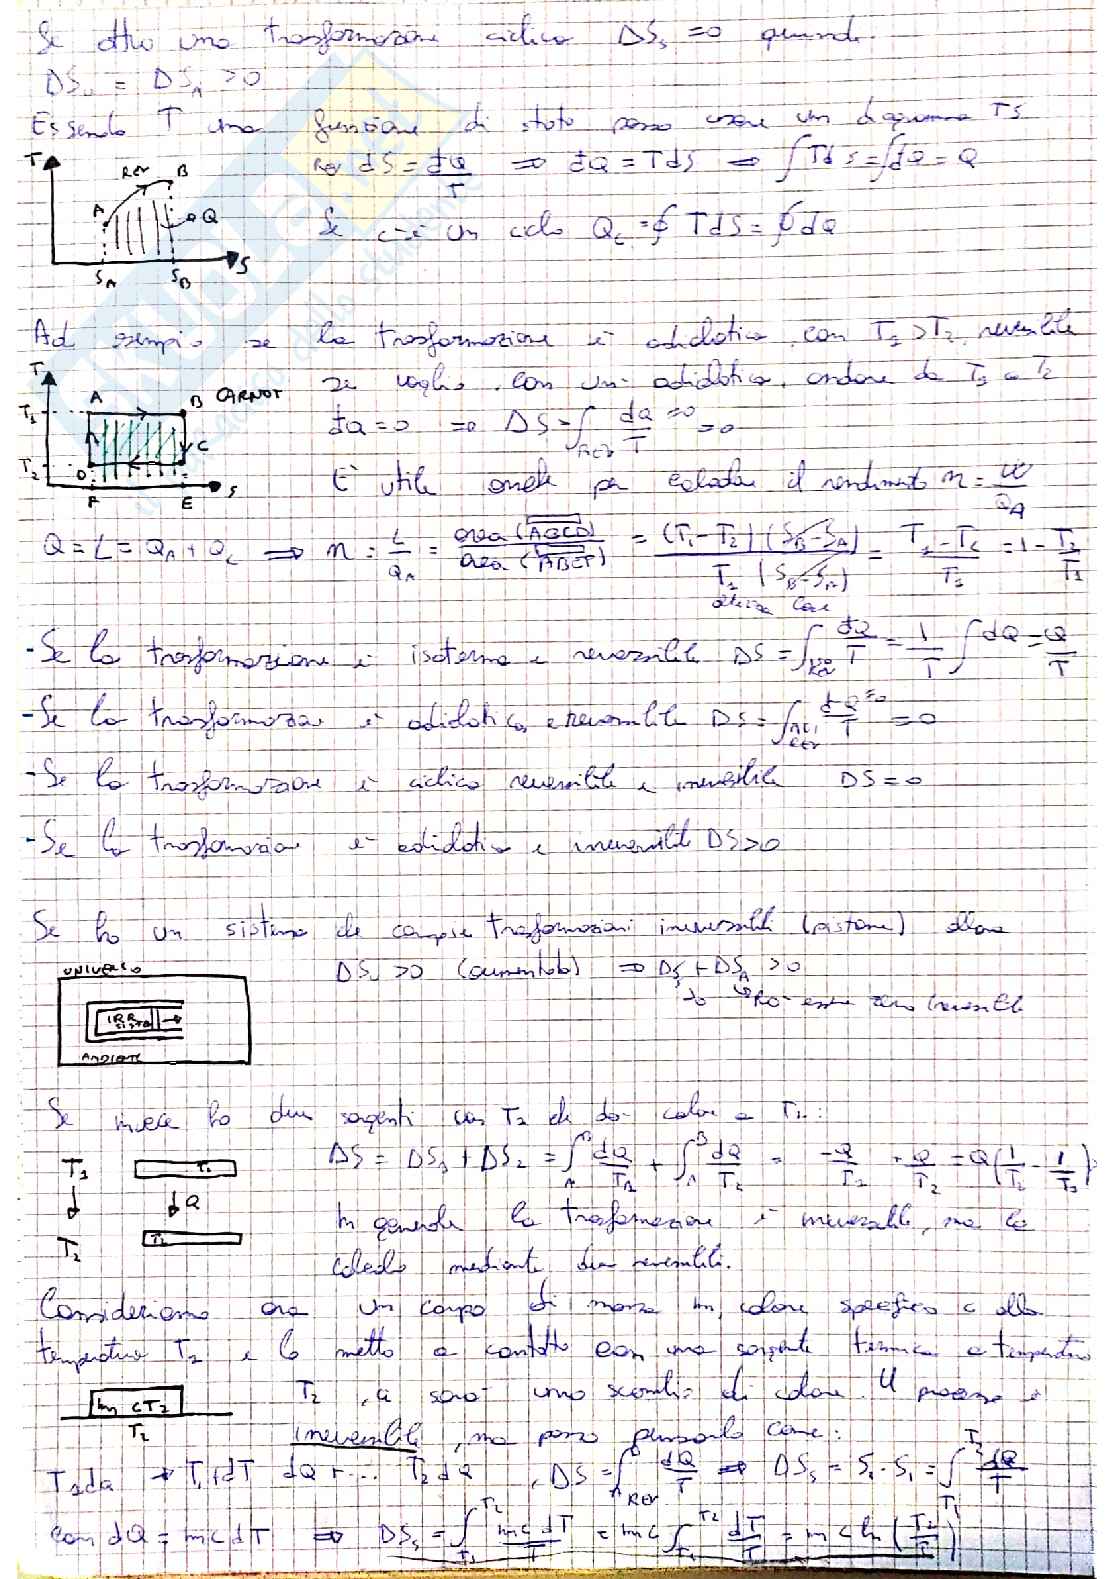 Se ho una trasformazione ciclica DSs = 0 quindi
DSu = DSA > 0
Essendo T una funzione di stato posso usare un diagramma TS
T REV B A Q SA SB S
REV dS = đQ/T ⇒ đQ = TdS ⇒ ∫TdS = ∫đQ = Q
Se c'è un ciclo Qc = ∮ TdS = ∮ đQ
Ad esempio se la trasformazione è adiabatica con T1 > T2, reversibile
se voglio, con un adiabatica, andare da T1 a T2
T A B CARNOT T1 C T2 D F E S
đQ = 0 ⇒ DS = ∫REV dQ/T = 0
È utile anche per calcolare il rendimento η = W/QA
Q = L = QA + QC ⇒ η = L/QA = area (ABCD)/area (ABEF) = (T1-T2)(SB-SA)/T1(SB-SA) = T1-T2/T1 = 1 - T2/T1
- Se la trasformazione è isoterma e reversibile DS = ∫REV đQ/T = 1/T ∫ đQ = Q/T
- Se la trasformazione è adiabatica e reversibile DS = ∫ đQ/T = 0
- Se la trasformazione è ciclica reversibile e irreversibile DS = 0
- Se la trasformazione è adiabatica e irreversibile DS > 0
Se ho un sistema che compie trasformazioni irreversibili (pistone) allora
UNIVERSO
DSu > 0 (aumentato) ⇒ DSs + DSA > 0
può essere zero reversibile
IRR SISTEMA
AMBIENTE
Se invece ho due sorgenti con T2 che dà calore a T1:
T1 T1
DS = DS1 + DS2 = ∫AB đQ/T1 + ∫AB đQ/T2 = -Q/T1 + Q/T2 = Q(1/T2 - 1/T1)
Q
T2 T2
In generale la trasformazione è irreversibile, ma la
calcolo mediante due reversibili.
Consideriamo ora un corpo di massa m, calore specifico c alla
temperatura T2 e lo metto a contatto con una sorgente termica a temperatura
m c T2
T2
T2, ci sarà uno scambio di calore. Il processo è
irreversibile, ma posso pensarlo come:
→ T1+dT dQ + ... T2 dQ, DS = ∫A REV B dQ/T ⇒ DSs = S2 - S1 = ∫T1 T2 dQ/T
con dQ = mcdT ⇒ DSs = ∫T1 T2 mcdT/T = mc ∫T1 T2 dT/T = mc ln (T2/T1)